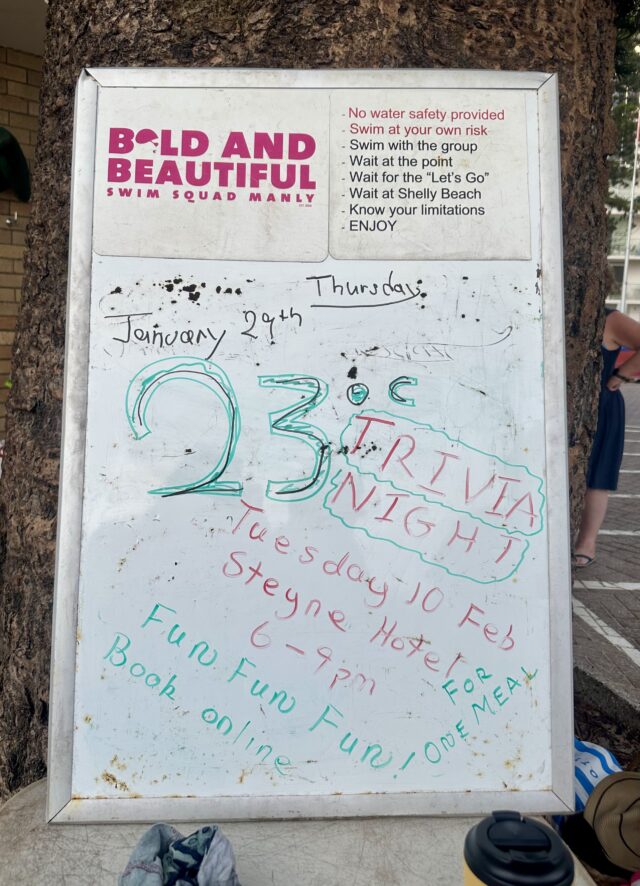 BOLD AND
BEAUTIFUL
SWIM SQUAD MANLY
- No water safety provided
- Swim at your own risk
- Swim with the group
- Wait at the point
- Wait for the “Let's Go”
- Wait at Shelly Beach
- Know your limitations
- ENJOY
Thursday
January 29th
23°C
TRIVIA
NIGHT
Tuesday 10 Feb
Steyne Hotel
6-9pm
Fun Fun Fun!
Book online
FOR
ONE MEAL